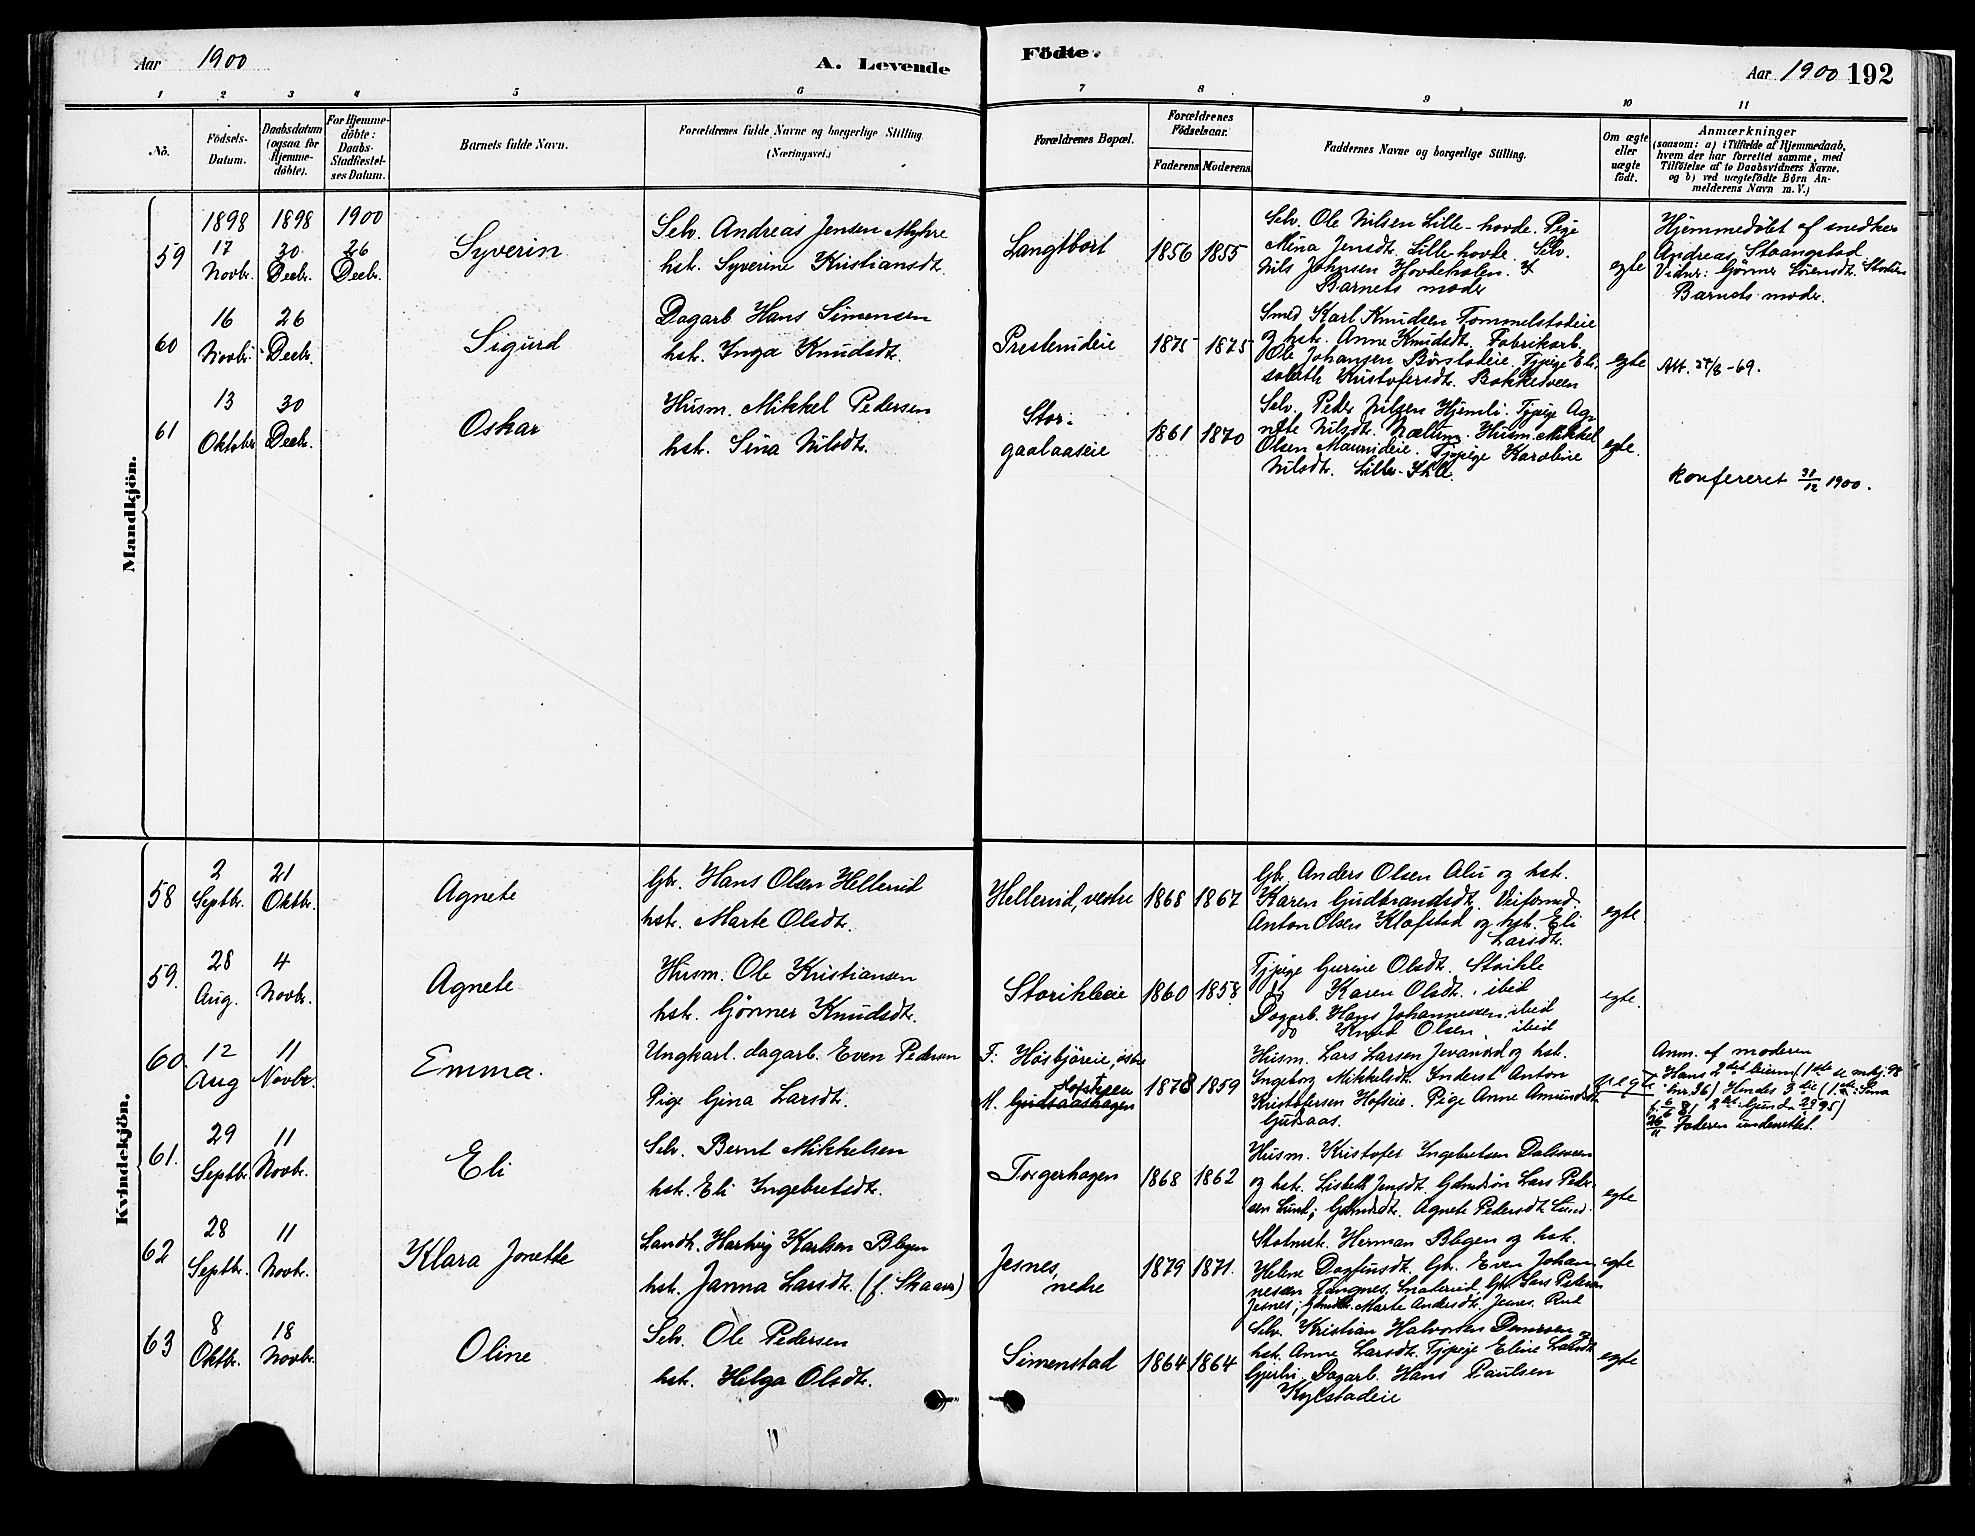 Aar 1900
A. Levende
Födte.
Aar 1900 192
1 2 3 4 5 6 7 8 9 10 11
No.
Födsels-
Datum.
Daabsdatum
(ogsaa for
Hjemme-
döbte).
For Hjemme-
döbte:
Daabs-
Stadfæstel-
ses Datum.
Barnets fulde Navn.
Forældrenes fulde Navne og borgerlige Stilling
(Næringsvei.)
Forældrenes Bopæl.
Forældrenes
Födselsaar.
Faderens Moderens
Faddernes Navne og borgerlige Stilling.
Om ægte
eller
uægte
födt.
Anmærkninger
(saasom: a) i Tilfælde af Hjemmedaab,
hvem der har forrettet samme, med
Tilföielse af to Daabsvidners Navne,
og b) ved uægtefödte Börn An-
melderens Navn m. V.)
Mandkjön.
59
1898
17
Novbr.
1898
30
Decbr.
1900
26
Decbr.
Syverin
Selv. Andreas Jensen Myhre
hst. Syverine Kristiansdt.
Langtbort
1856 1855
Selv. Ole Nilsen Lille-hovde. Pige
Mina Jensdt. Lillehovde. Selv.
Nils Johnsen Hovdeholen. &
Barnets moder
egte
Hjemmedøbt af snedker
Andreas Staangstad
Vidner: Gønner Sørensdt.
Barnets moder.
60
16
Novbr.
26
Decbr.
Sigurd
Dagarb. Hans Simensen
hst. Inga Knudsdt.
Prestenideie
1875 1875
Smed Karl Knudsen Tommelstadeie
og hst. Anne Knudsdt. Fabrikarb.
Ole Johansen Børstadeie. Tjpige Eli-
sabeth Kristofersdt. Bakkesveen
egte
Att. /8-69.
61
13
Oktober
30
Decbr.
Oskar
Husm. Mikkel Pedersen
hst. Sina Nilsdt.
Stor-
gaalaaseie
1861 1870
Selv. Peder Nilsen Hjemli. Tjpige Ag-
nethe Nilsdt. Nælum. Husm. Mikkel
Olsen Maurudeie. Tjpige Karoline
Nilsdt. Lille-
egte.
Konfereret 31/12 1900.
Kvindekjön.
58
2
Septbr.
21
Oktbr.
Agnete
Gbr. Hans Olsen Hellerud
hst. Marte Olsdt.
Hellerud, vestre
1868 1867
Gbr. Anders Olsen Alu og hst.
Karen Gudbrandsdt. Veiformd.
Anton Olsen Klafstad og hst. Eli
Larsdt.
egte.
59.
28
Aug.
4
Novbr.
Agnete
Husm. Ole Kristiansen
hst. Gønner Knudsdt.
Storihleie
1860 1858
Tjpige Gurine Olsdt. Storihle
do Karen Olsdt. ibid
Dagarb. Hans Johannessen, ibid
do Knud Olsen ibid
egte.
60.
12
Aug
11
Novbr.
Emma.
Ungkarl. dagarb. Even Pedersen
Pige Gina Larsdt.
F: Høsbjøreie, østre
M. Gudsaashagen
1878 1859
Husm. Lars Larsen Jevanord og hst.
Ingeborg Mikkelsdt. Inderst Anton
Kristofersen Hofseie. Pige Anne Amundsdt.
Gudsaas.
uegte
Anm. af moderen
Hans 2det leierm. (1ste se mkj. 98
nr. 36) Hendes 3die (1ste: Sina
f. 6/6 81 2det: Gunda 29/9 95)
26/11 Faderen underrettet.
61.
29
Septbr.
11
Novbr.
Eli
Selv. Bernt Mikkelsen
hst. Eli Ingebretsdt.
Torgerhagen
1868 1862
Husm. Kristofer Ingebretsen Dalsveen
og hst. Lisbeth Jensdt. Gdmdsøn Lars Peder-
sen Lund; Gdmdsdt. Agnete Pedersdt. Lund.
egte
62
28
Septbr.
11
Novbr.
Klara Jonette
Landh. Hartvig Karlsen Blegen
hst. Janna Larsdt. (f. Skaar)
Jesnes,
nedre
1879 1871.
Herman Blegen og hst.
Helene Dagfinsdt. Gbr. Even Johan-
nessen Tangnes, Gbr. Lars Peterson
Jesnes; Gdmdsdt. Marte Andersdt. Jesnes. Rud
egte
63
8
Oktbr.
18
Novbr.
Oline
Selv. Ole Pedersen
hst. Helga Olsdt.
Simenstad
1864 1864
Selv. Kristian Halvorsen og
hst. Anne Larsdt. Tjpige Eline Larsdt.
Gjerlu, Dagarb. Hans Paulsen
Kylstadeie
egte